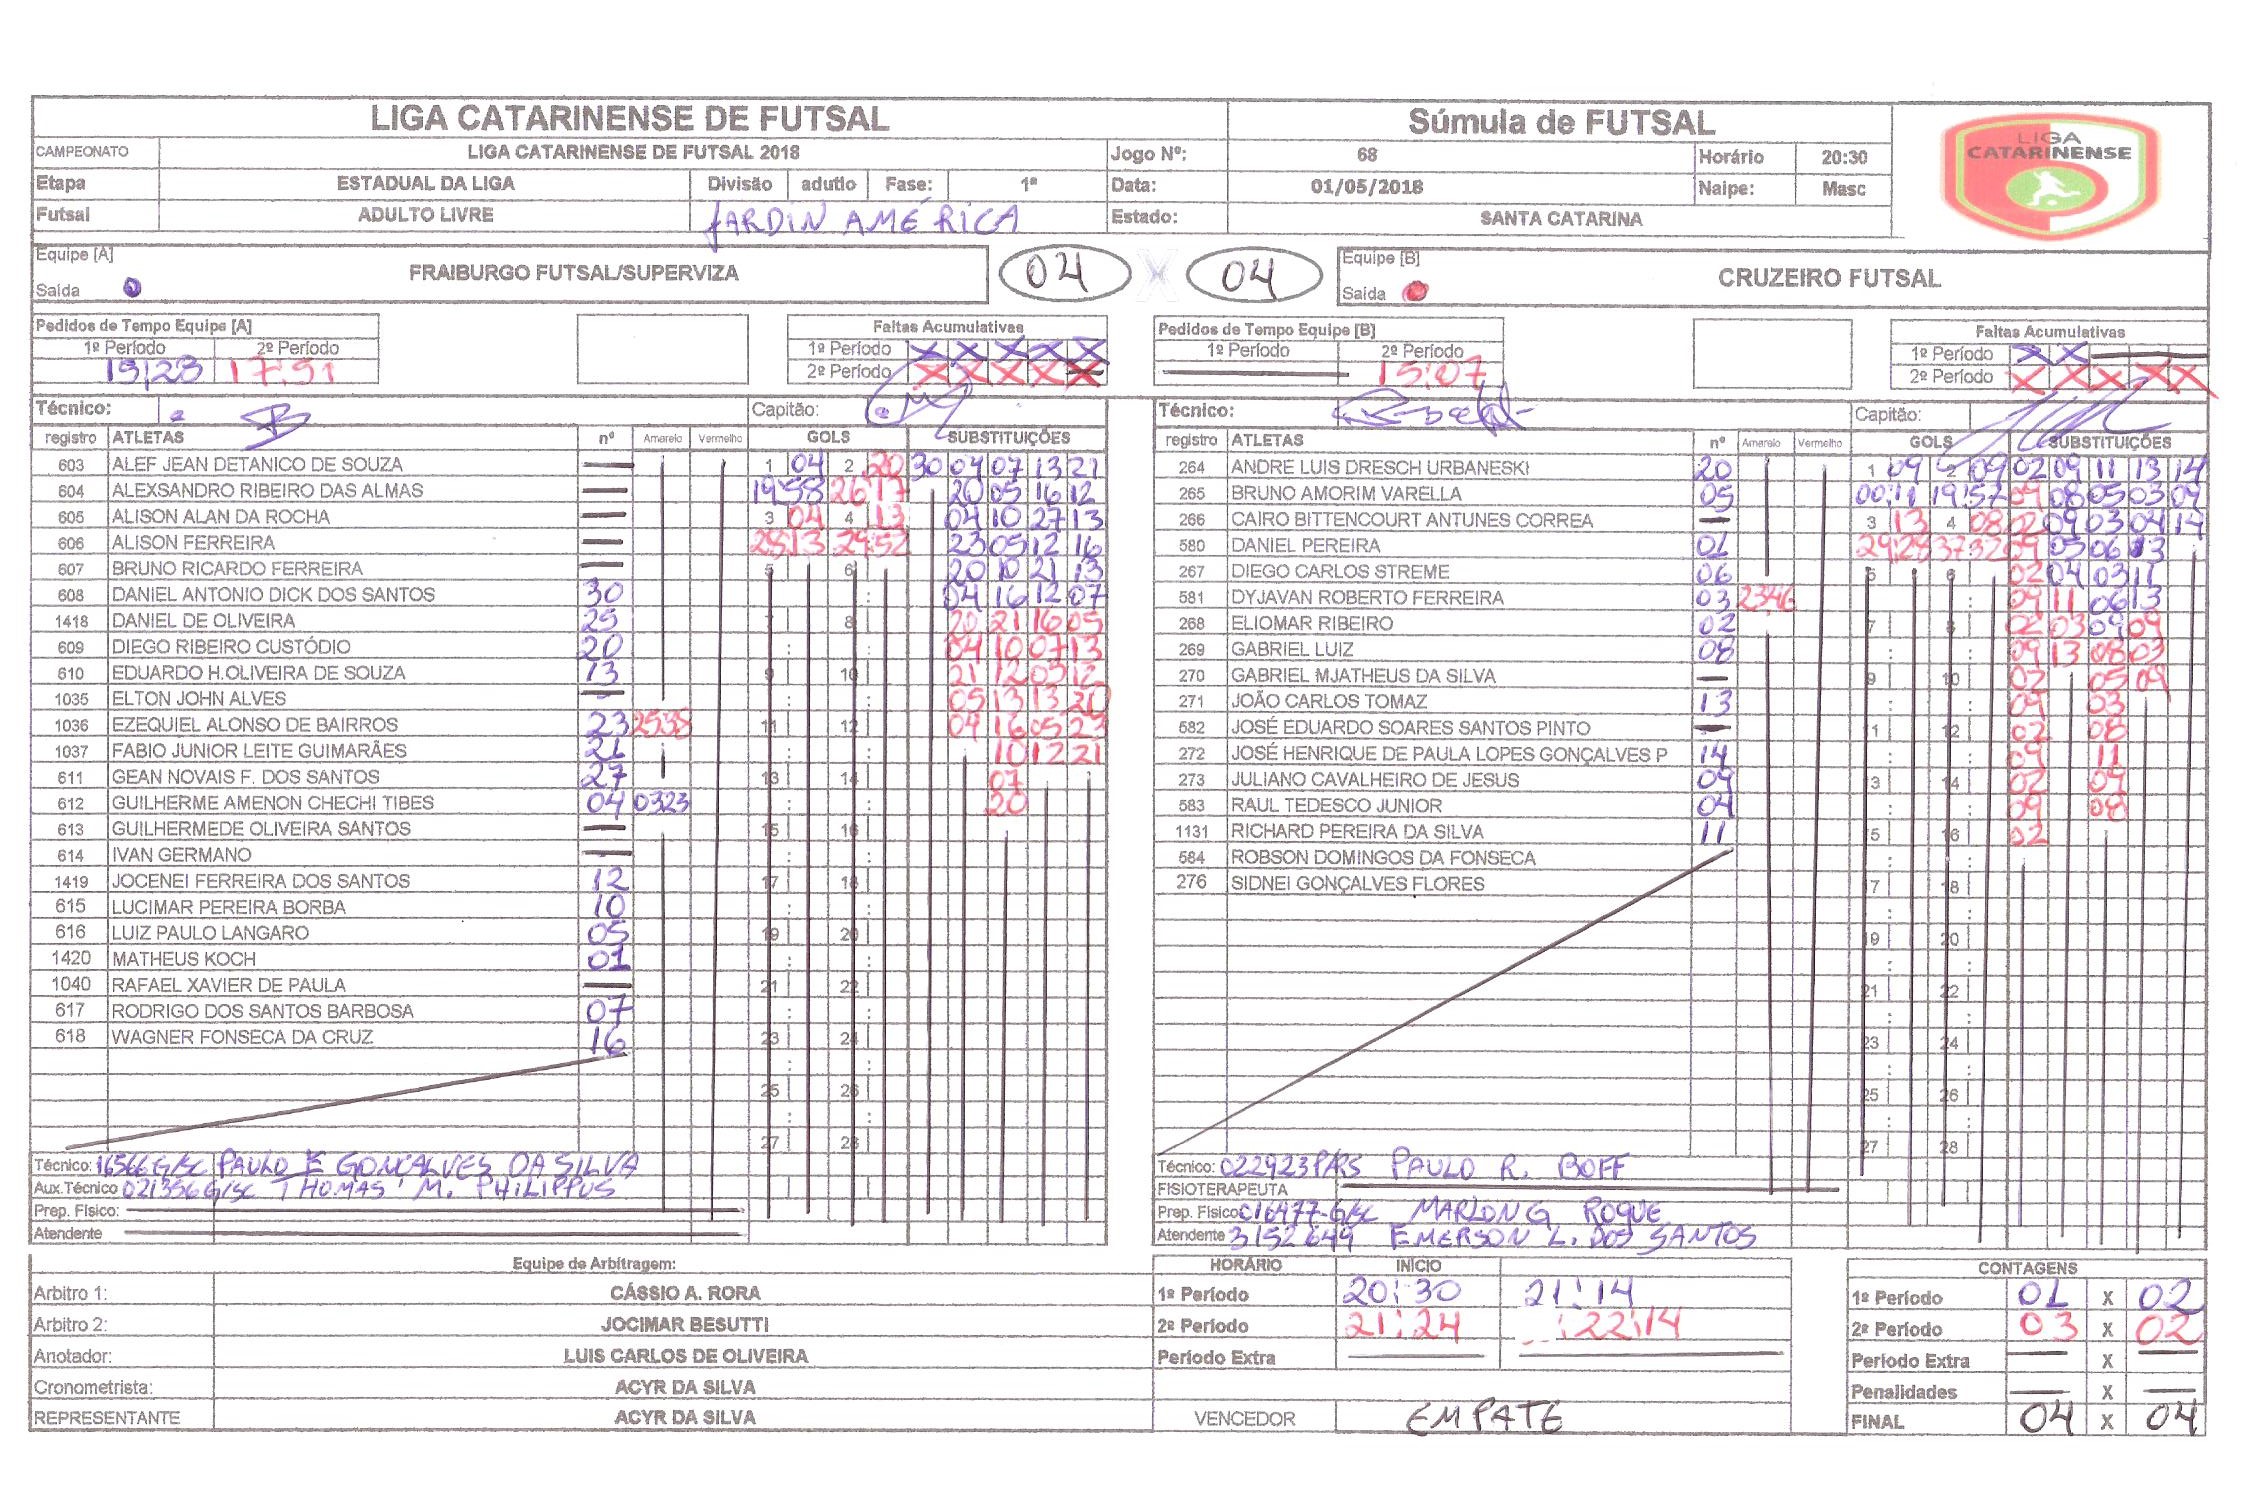 LIGA CATARINENSE DE FUTSAL Súmula de FUTSAL
LIGA CATARINENSE
CAMPEONATO LIGA CATARINENSE DE FUTSAL 2018 Jogo Nº: 68 Horário 20:30
Etapa ESTADUAL DA LIGA Divisão adutlo Fase: 1ª Data: 01/05/2018 Naipe: Masc
Futsal ADULTO LIVRE JARDIN AMÉRICA Estado: SANTA CATARINA
Equipe [A] FRAIBURGO FUTSAL/SUPERVIZA 04 X 04 Equipe [B] CRUZEIRO FUTSAL
Saída Saída
Pedidos de Tempo Equipe [A] Faltas Acumulativas Pedidos de Tempo Equipe [B] Faltas Acumulativas
1º Período 2º Período 1º Período X X X X X 1º Período 2º Período 1º Período X X
17:51 2º Período X X X X X 15:07 2º Período X X X X X
Técnico: Capitão: Técnico: Capitão:
registro ATLETAS nº Amarelo Vermelho GOLS SUBSTITUIÇÕES registro ATLETAS nº Amarelo Vermelho GOLS SUBSTITUIÇÕES
603 ALEF JEAN DETANICO DE SOUZA 1 04 2 20 30 04 07 13 21 264 ANDRE LUIS DRESCH URBANESKI 20 1 09 2 09 02 09 11 13 14
604 ALEXSANDRO RIBEIRO DAS ALMAS 19:58 26:17 20 05 16 12 265 BRUNO AMORIM VARELLA 05 00:11 19:57 09 08 05 03 09
605 ALISON ALAN DA ROCHA 3 04 4 13 04 10 27 13 266 CAIRO BITTENCOURT ANTUNES CORREA 3 13 4 08 02 09 03 04 14
606 ALISON FERREIRA 28:13 29:52 23 05 12 16 580 DANIEL PEREIRA 01 29:28 37:32 09 05 06 13
607 BRUNO RICARDO FERREIRA 5 6 20 10 21 13 267 DIEGO CARLOS STREME 06 5 6 02 04 03 11
608 DANIEL ANTONIO DICK DOS SANTOS 30 04 16 12 07 581 DYJAVAN ROBERTO FERREIRA 03 2346 09 11 06 13
1418 DANIEL DE OLIVEIRA 25 7 8 20 21 16 05 268 ELIOMAR RIBEIRO 02 7 8 02 03 09 09
609 DIEGO RIBEIRO CUSTÓDIO 20 04 10 07 13 269 GABRIEL LUIZ 08 09 13 08 03
610 EDUARDO H.OLIVEIRA DE SOUZA 13 9 10 21 12 05 12 270 GABRIEL MJATHEUS DA SILVA 9 10 02 05 09
1035 ELTON JOHN ALVES 05 13 13 20 271 JOÃO CARLOS TOMAZ 13 09 03
1036 EZEQUIEL ALONSO DE BAIRROS 23 2538 11 12 04 16 05 23 582 JOSÉ EDUARDO SOARES SANTOS PINTO 11 12 02 08
1037 FABIO JUNIOR LEITE GUIMARÃES 21 10 12 21 272 JOSÉ HENRIQUE DE PAULA LOPES GONÇALVES P 14 09 11
611 GEAN NOVAIS F. DOS SANTOS 27 13 14 07 273 JULIANO CAVALHEIRO DE JESUS 09 13 14 02 09
612 GUILHERME AMENON CHECHI TIBES 04 0323 20 583 RAUL TEDESCO JUNIOR 04 09 08
613 GUILHERMEDE OLIVEIRA SANTOS 15 16 1131 RICHARD PEREIRA DA SILVA 11 15 16 02
614 IVAN GERMANO 584 ROBSON DOMINGOS DA FONSECA
1419 JOCENEI FERREIRA DOS SANTOS 12 17 18 276 SIDNEI GONÇALVES FLORES 17 18
615 LUCIMAR PEREIRA BORBA 10
616 LUIZ PAULO LANGARO 05 19 20 19 20
1420 MATHEUS KOCH 01
1040 RAFAEL XAVIER DE PAULA 21 22 21 22
617 RODRIGO DOS SANTOS BARBOSA 07
618 WAGNER FONSECA DA CRUZ 16 23 24 23 24
25 26 25 26
27 28 27 28
Técnico: 16566G/SC PAULO E GONÇALVES DA SILVA Técnico: 022923P/RS PAULO R. BOFF
Aux.Técnico 021356G/SC THOMAS M. PHILIPPUS FISIOTERAPEUTA
Prep. Físico: Prep. Físico 016477-G/SC MARLON G ROQUE
Atendente Atendente 3152649 EMERSON L. DOS SANTOS
Equipe de Arbitragem: HORÁRIO INÍCIO CONTAGENS
Arbitro 1: CÁSSIO A. RORA 1º Período 20:30 21:14 1º Período 01 X 02
Arbitro 2: JOCIMAR BESUTTI 2º Período 21:24 22:14 2º Período 03 X 02
Anotador: LUIS CARLOS DE OLIVEIRA Período Extra Período Extra X
Cronometrista: ACYR DA SILVA Penalidades X
REPRESENTANTE ACYR DA SILVA VENCEDOR EMPATE FINAL 04 X 04